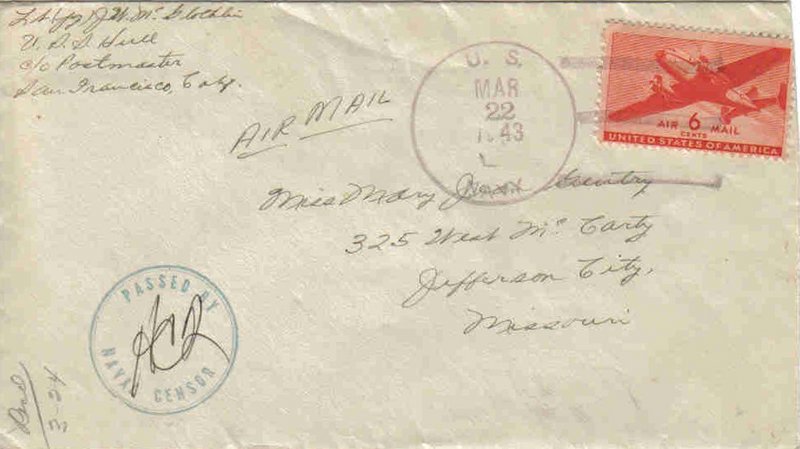 Lt (jg) J. W. McGlothlin
U. S. S Hull
c/o Postmaster
San Francisco, Calif.
AIR MAIL
U. S.
MAR
22
1943
NAVY
AIR 6 MAIL
CENTS
UNITED STATES OF AMERICA
Miss Mary Gentry
325 West McCarty
Jefferson City,
Missouri
PASSED BY
NAVAL CENSOR
3-24